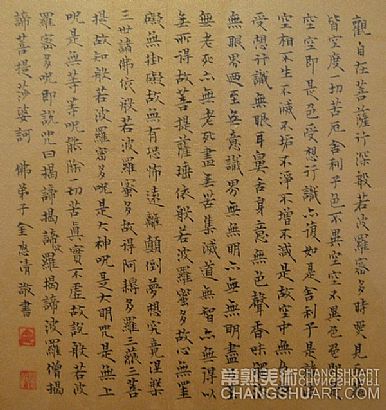 觀自在菩薩行深般若波羅密多時照見五
皆空度一切苦厄舍利子色不異空空不異色色即
空空即是色受想行識亦復如是舍利子是
空相不生不滅不垢不淨不增不減是故空中無
受想行識無眼耳鼻舌身意無色聲香味
無眼界乃至無意識界無無明亦無無明盡
無老死亦無老死盡無苦集滅道無智亦無得以
無所得故菩提薩埵依般若波羅密多故心無罣
礙無掛礙故無有恐怖遠離顛倒夢想究竟涅槃
三世諸佛依般若波羅密多故得阿耨多羅三藐三菩
提故知般若波羅密多咒是大神咒是大明咒是無上
咒是無等等咒能除一切苦真實不虛故說般若波
羅密多咒即說咒曰揭諦揭諦波羅揭諦波羅僧揭
諦菩提莎婆訶 佛弟子金惠清敬書
常熟美術
CHANGSHU.BIZ